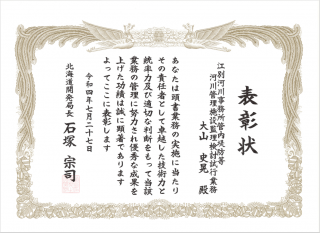 表彰状
江別河川事務所管内堤防等
河川管理施設監理検討試行業務
大山 史晃 殿
あなたは頭書業務の実施に当たり
その責任者として卓越した技術力と
統率力及び適切な判断をもって当該
業務の管理に努力され優秀な成果を
上げた功績は誠に顕著であります
よってここに表彰します
令和四年七月二十七日
北海道開発局長 石塚 宗司